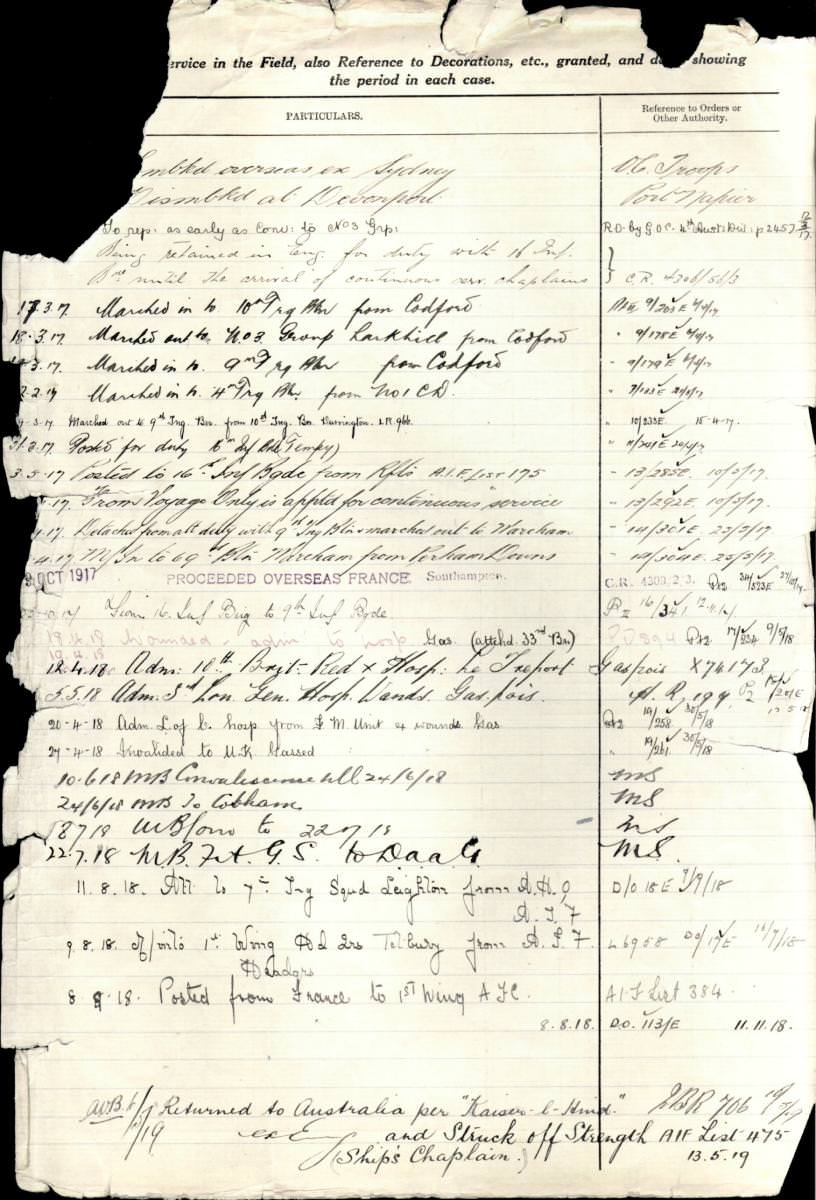 ervice in the Field, also Reference to Decorations, etc., granted, and showing
the period in each case.
PARTICULARS.
Reference to Orders or
Other Authority.
mbkd overseas ex Sydney O.C. Troops
Disembkd at Devonport Port Napier
To rep: as early as conv: to No 3 Grp: R.O. by G.O.C. 4th Aust Div: p 2457
Being retained in Eng. for duty with 16 Inf.
Bde until the arrival of continuous serv. chaplains C.R. 4306/56/3
17.3.17. Marched in to 10th Trg Btn from Codford
18.3.17. Marched out to No 3 Group Larkhill from Codford " 9/178E
.3.17. Marched in to 9th Trg Btn from Codford - 9/179E
2.17 Marched in to 4th Trg Btn. from No 1 C.D.
.3.17. Marched out to 9th Tng. Bn. from 10th Tng. Bn. Durrington. 10/233E. 15-4-17.
31.3.17. Posted for duty Inf Bde (Tempy)
3.5.17 Posted to 16th Inf Bgde from Rfts A.I.F List 175 - 13/285E. 10/5/17.
.17. "From Voyage Only is apptd for continuous" service - 13/292E. 10/5/17.
.17. Detached from att duty with 9th Tng Btn & marched out to Wareham - 14/301E - 23/5/17
.4.17 M/In to 69th Btn Wareham from Perham Downs - 14/304E. 25/5/17.
OCT 1917 PROCEEDED OVERSEAS FRANCE. Southampton. C.R. 4300/2/3.
From 16. Inf Brig to 9th Inf Bgde 16/341
18.4.18 Wounded - adm to hosp Gas. (attchd 33rd Bn) 17/234 9/5/18
19.4.18
18.4.18 Adm: 10th Brit: Red X Hosp: Le Treport Gas pois X74173
5.5.18 Adm. 3rd Lon. Gen. Hosp. Wands. Gas. pois.
20-4-18 Adm L of C. hosp from F.M. Unit ex wounds Gas 19/258 30/5/18
27-4-18 Invalided to U.K Gassed " 19/261 30/5/18
10.6.18 MB Convalescence till 24/6/18 MS
24/6/18 MB To Cobham MS
8 7 18 MB Conv to 22 7 18 MS
22.7.18 M.B. Fit G.S. to D.A.A.G. MS.
11.8.18. Att to 7th Trg Squd Leighton from A.H.Q D/O 18E 7/9/18
A.I.F
9.8.18. M/into 1st Wing Hd Qrs Tetbury from A.I.F. L6958 DO/17E 16/7/18
Headqrs
8 8-18. Posted from France to 1st Wing A F C. A.I.F List 384
8.8.18. D.O. 113/E 11.11.18.
Returned to Australia per "Kaiser-i-Hind." EBR 706
/19 and Struck off Strength AIF List 475
(Ship's Chaplain.) 13.5.19